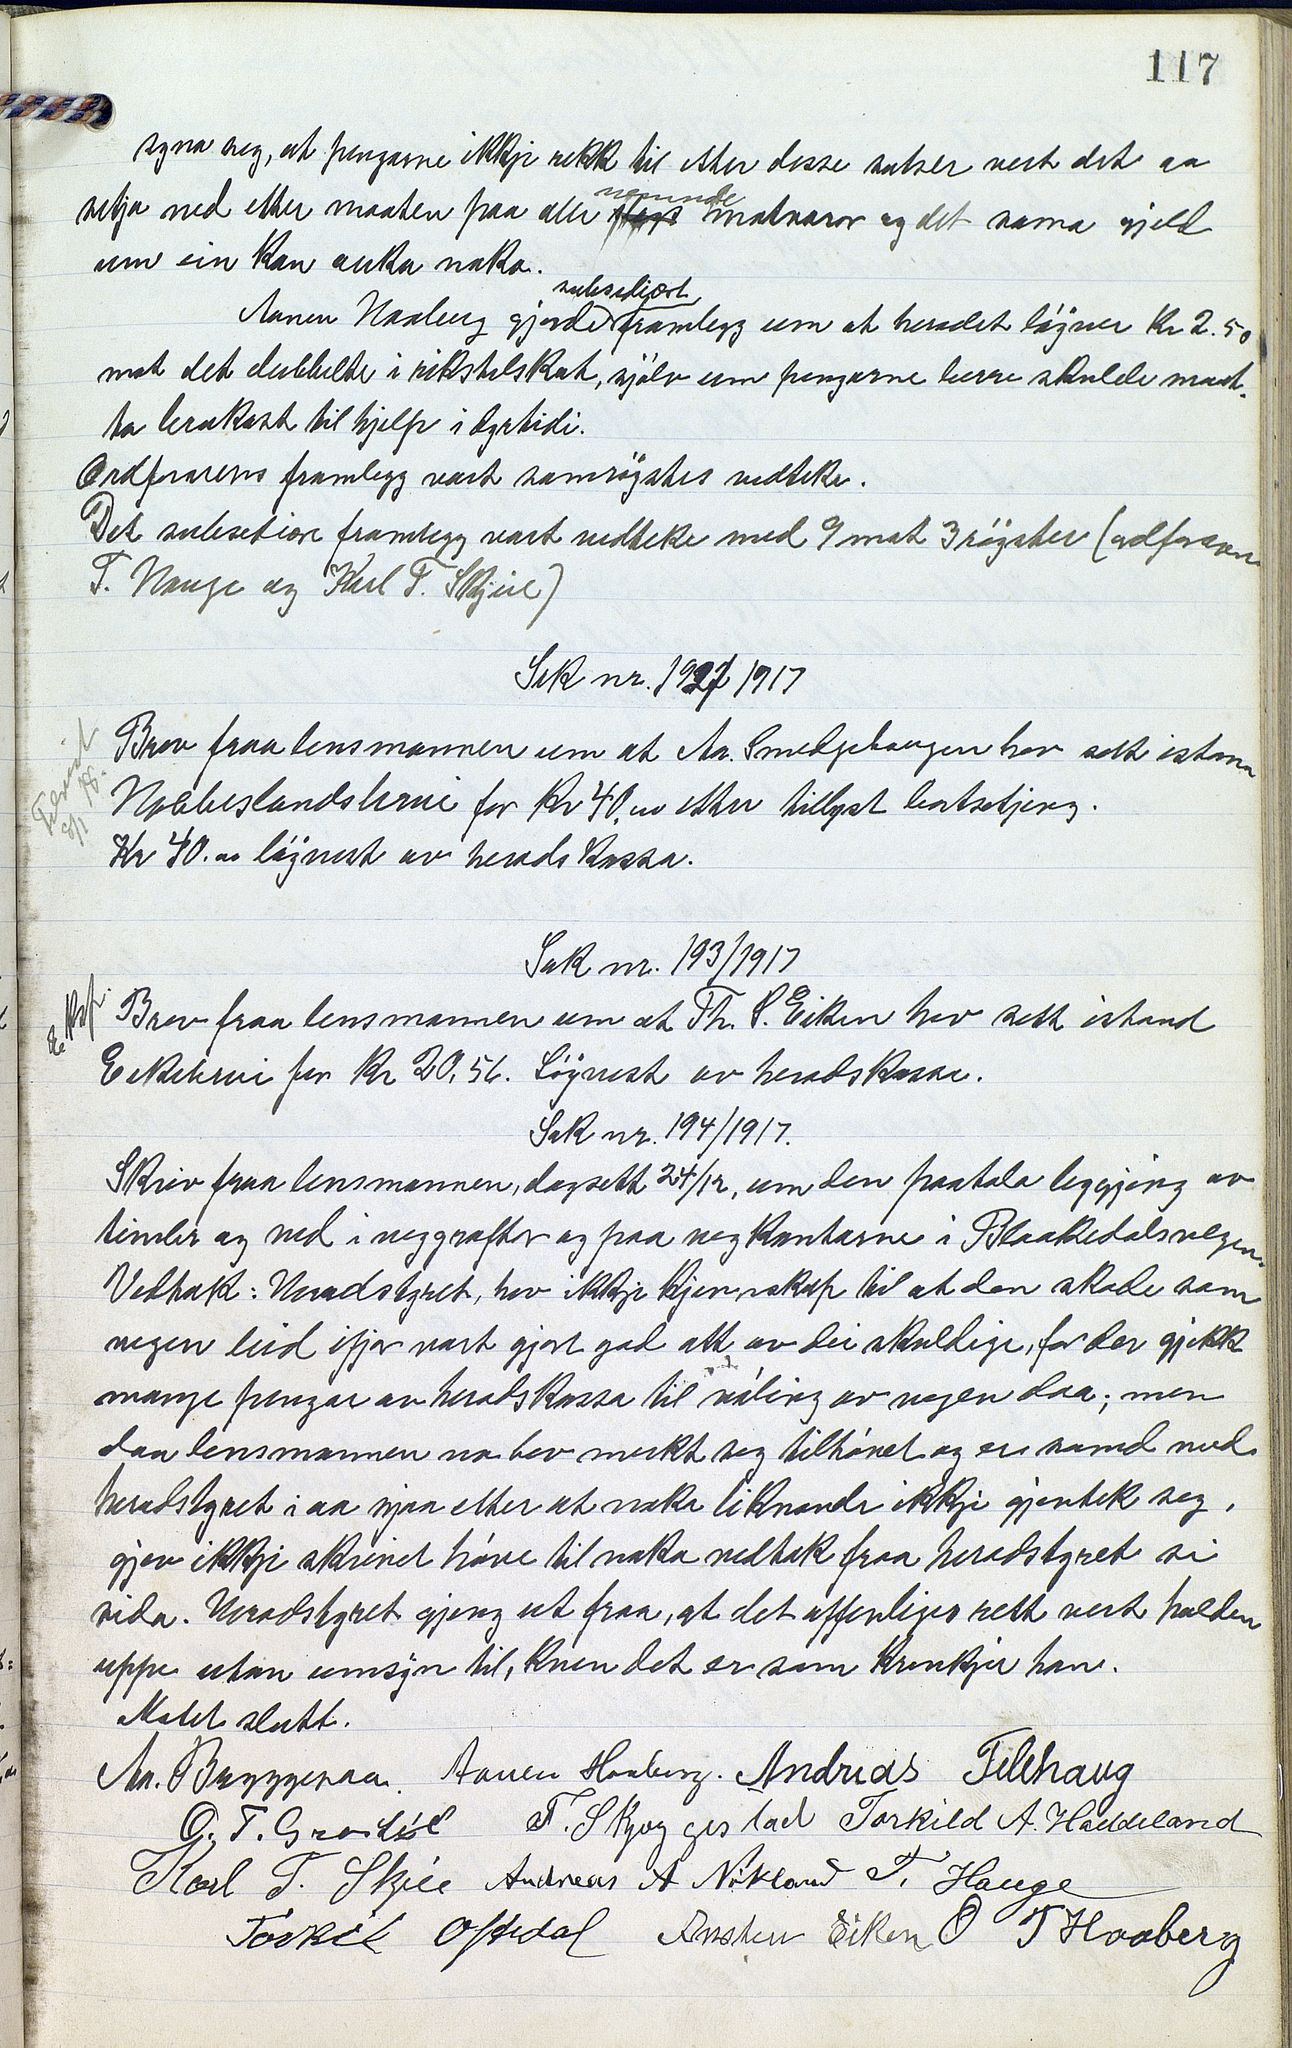 117
syna seg, at pengarne ikkje rekk til etter desse satser vert det aa
setja ned etter maaten paa alle nemnde matvaror og det sama gjeld
um ein kan auka noko.
subsidiært
Aanen Haaberg gjorde framlegg um at heradet løgner Kr 2.50
mot det dubbelte i rikstilskot, sjølv um pengarne berre skulde maat-
ta brukast til hjelp i dyrtidi.
Ordførarens framlegg vart samrøystes vedteke.
Det subsidiære framlegg vart vedteke med 9 mot 3 røyster (ordføraren
T. Hauge og Karl T. Skjeie)
Sak nr. 192/1917
Brev fraa lensmannen um at Aa. Smedhaugen hev sett istand
Hobbeslandsbrui for Kr 40.00 etter tillyst bortsetjing.
Kr 40.00 løgvest av heradskassa.
Sak nr. 193/1917
E. Utskr.
Brev fraa lensmannen um at Th. S. Eiken hev sett istand
Eikebrui for Kr 20,56. Løgvest av heradskassa.
Sak nr. 194/1917.
Skriv fraa lensmannen, dagsett 24/12, um den paatala leggjing av
timber og ved i veggrøfter og paa vegkantarne i Blaakedalsvegen.
Vedtak: Heradstyret, hev ikkje kjennskap til at den skade som
vegen leid ifjor vart gjort god att av dei skuldige, for der gjekk
mange pengar av heradskassa til vøling av vegen daa; men
daa lensmannen no hev merkt seg tilhøvet og er samd med
heradstyret i aa sjaa etter at noko liknande ikkje gjentek seg,
gjev ikkje skrivet høve til noko vedtak fraa heradstyret si
sida. Heradstyret gjeng ut fraa, at det offenlege rett vert halden
uppe utan umsyn til, kven det er som krenkjer han.
Møtet slutt.
Aa. Bryggesaa. Aanen Haaberg. Andreas Felehaug
O. T. Grødil T. Skjeggestad Torkild A. Haddeland
Karl T. Skjeie Andreas A Nökland T. Hauge
Torkil Oftedal Ansten Eiken O T Haaberg